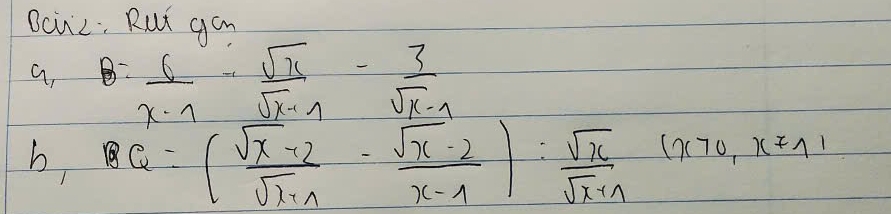 Bài 2: Rút gọn
a, B = 6/(x-1) - √x/(√x+1) - 3/(√x-1)
b, Q = ((√x+2)/(√x+1) - (√x-2)/(x-1)) : √x/(√x+1) (x>0, x≠1)